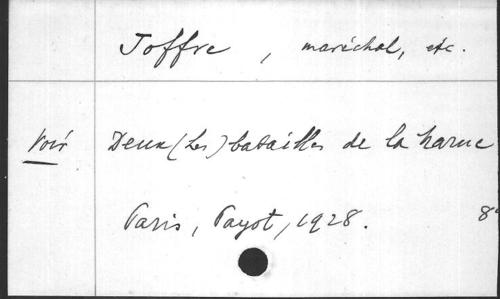 Joffre, maréchal, etc.
Voir Deux (Les) batailles de la Marne
Paris, Payot, 1928. 8°